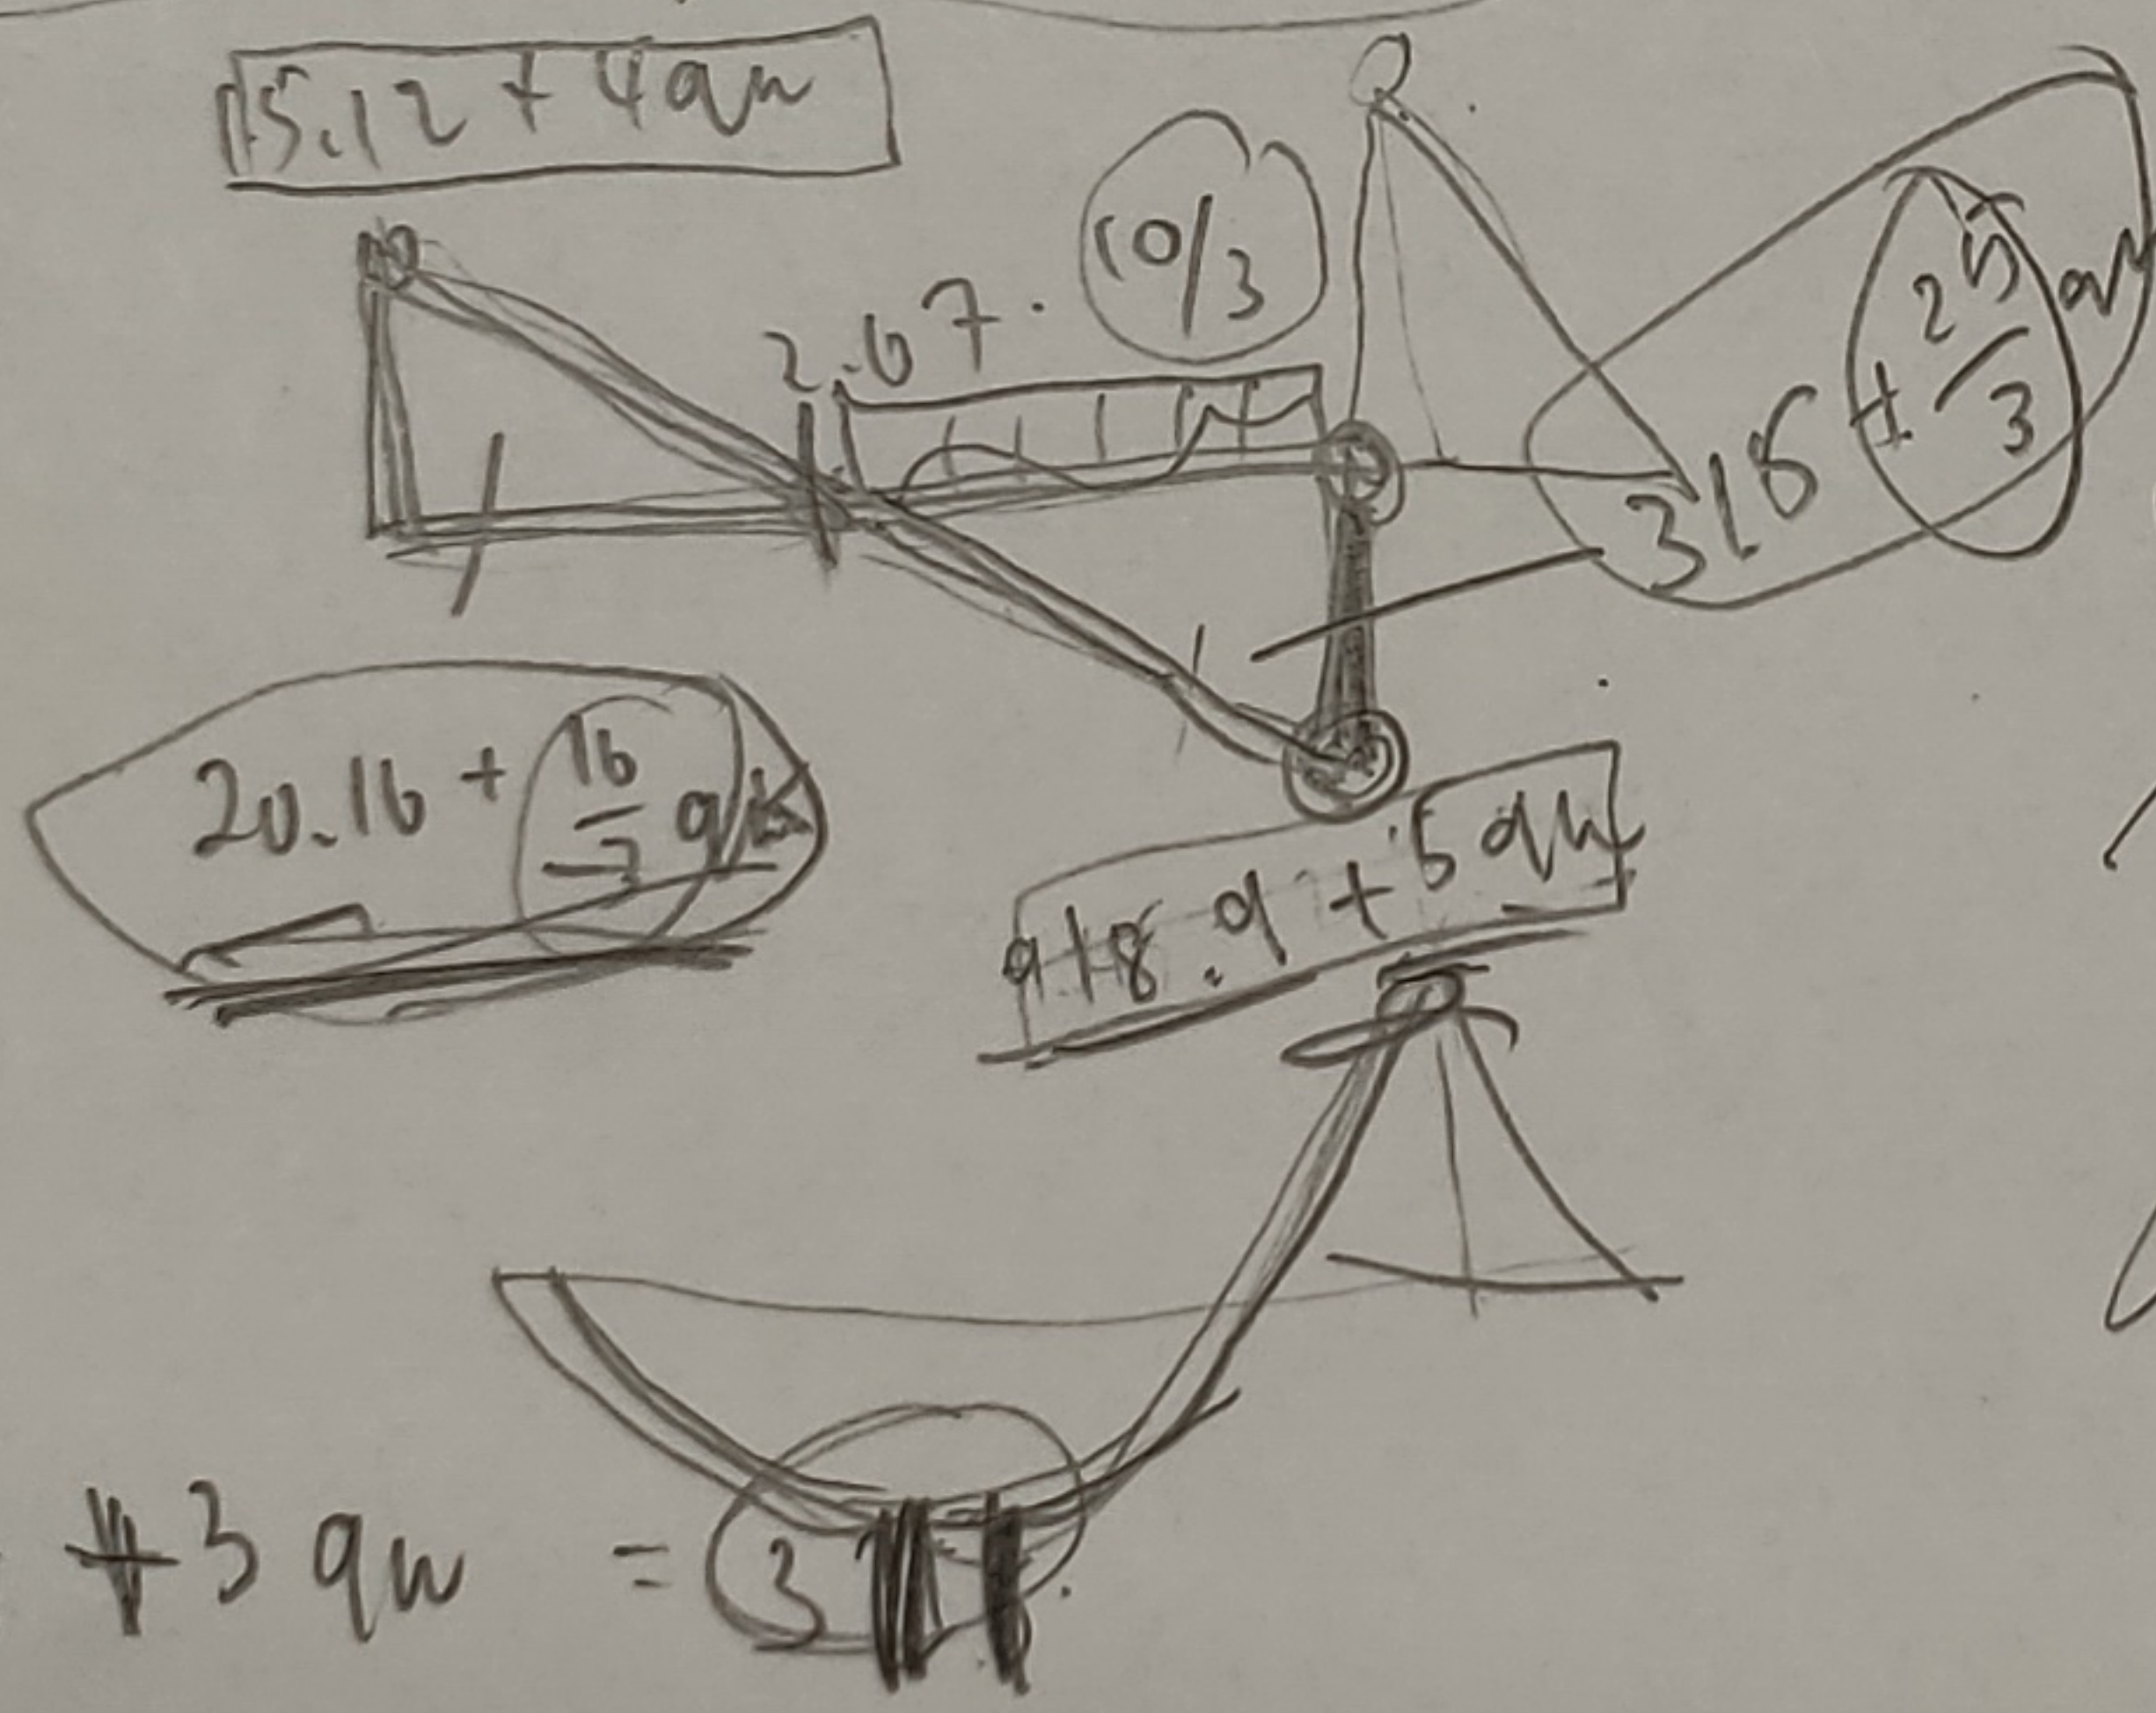 15.12 + 4qu
2.67. 10/3
31.5 + 25/3 qu
20.16 + 16/3 qu
18.9 + 5 qu
+3 qu = 3